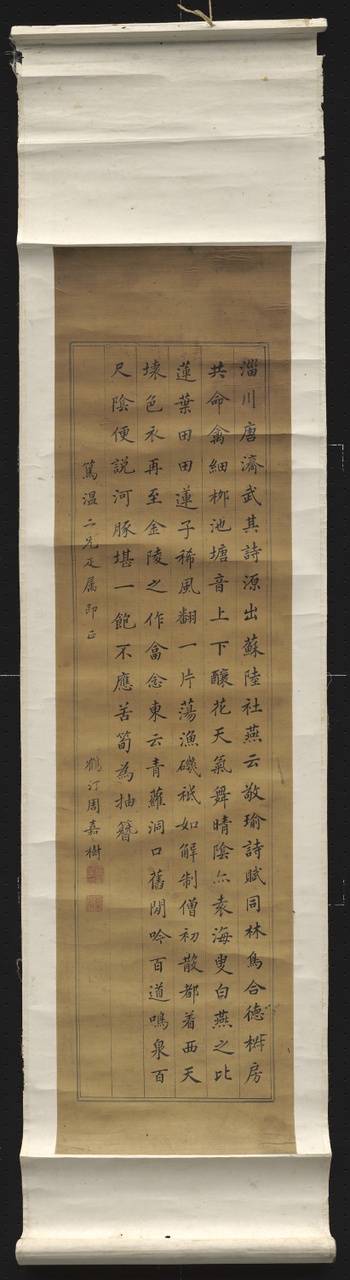 淄川唐濟武其詩源出蘇陸社燕云敬瑜詩賦同林鳥合德椒房
共命禽細柳池塘音上下釀花天氣舞晴陰亦袁海叟白燕之比
蓮葉田田蓮子稀風翻一片蕩漁磯祗如解制僧初散都着西天
壞色衣再至金陵之作畣念東云青蘿洞口舊閒吟百道鳴泉百
尺陰便説河豚堪一飽不應苦筍為抽簪
篤溫二兄疋屬即正
鶴汀周嘉樹